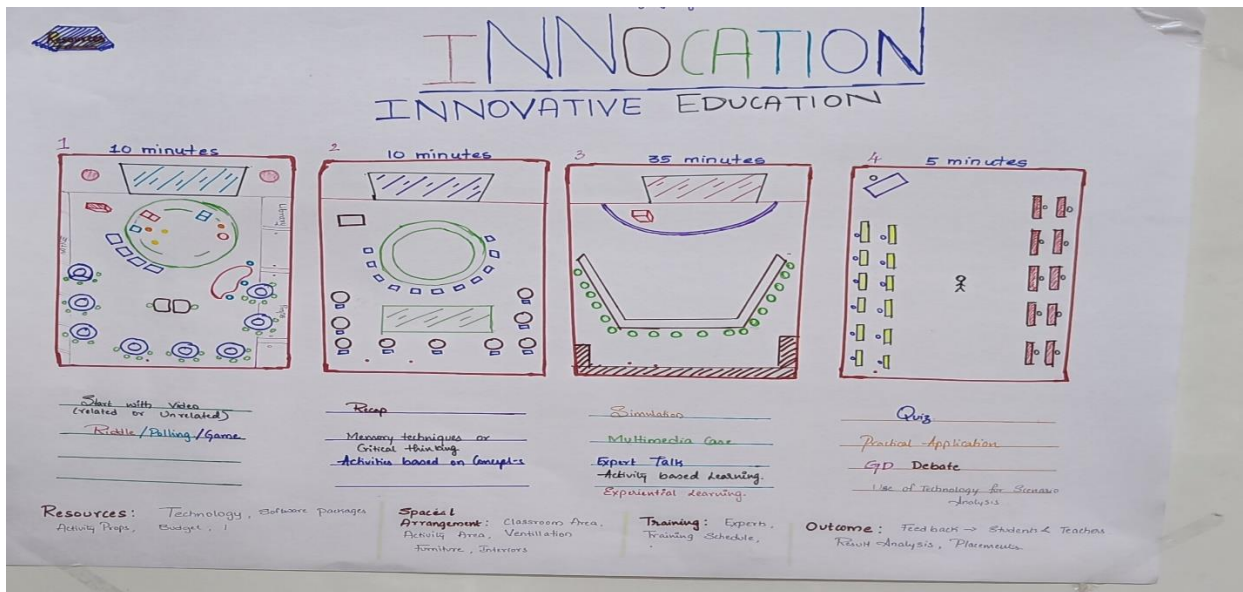 Resources
INNOCATION
INNOVATIVE EDUCATION
1
10 minutes
Library
2
10 minutes
3
35 minutes
4
5 minutes
Start with Video
(related or Unrelated)
Riddle / Polling / Game
Recap
Memory techniques or
Critical thinking
Activities based on Concept-s
Simulation
Multimedia Case
Expert Talk
Activity based Learning.
Experiential Learning.
Quiz
Practical Application
GD Debate
Use of Technology for Scenario
Analysis
Resources: Technology, Software packages
Activity Props, Budget,
Spacial
Arrangement: Classroom Area,
Activity Area, Ventillation
Furniture, Interiors
Training: Experts,
Training Schedule,
Outcome: Feedback → Students & Teachers
Result Analysis, Placements